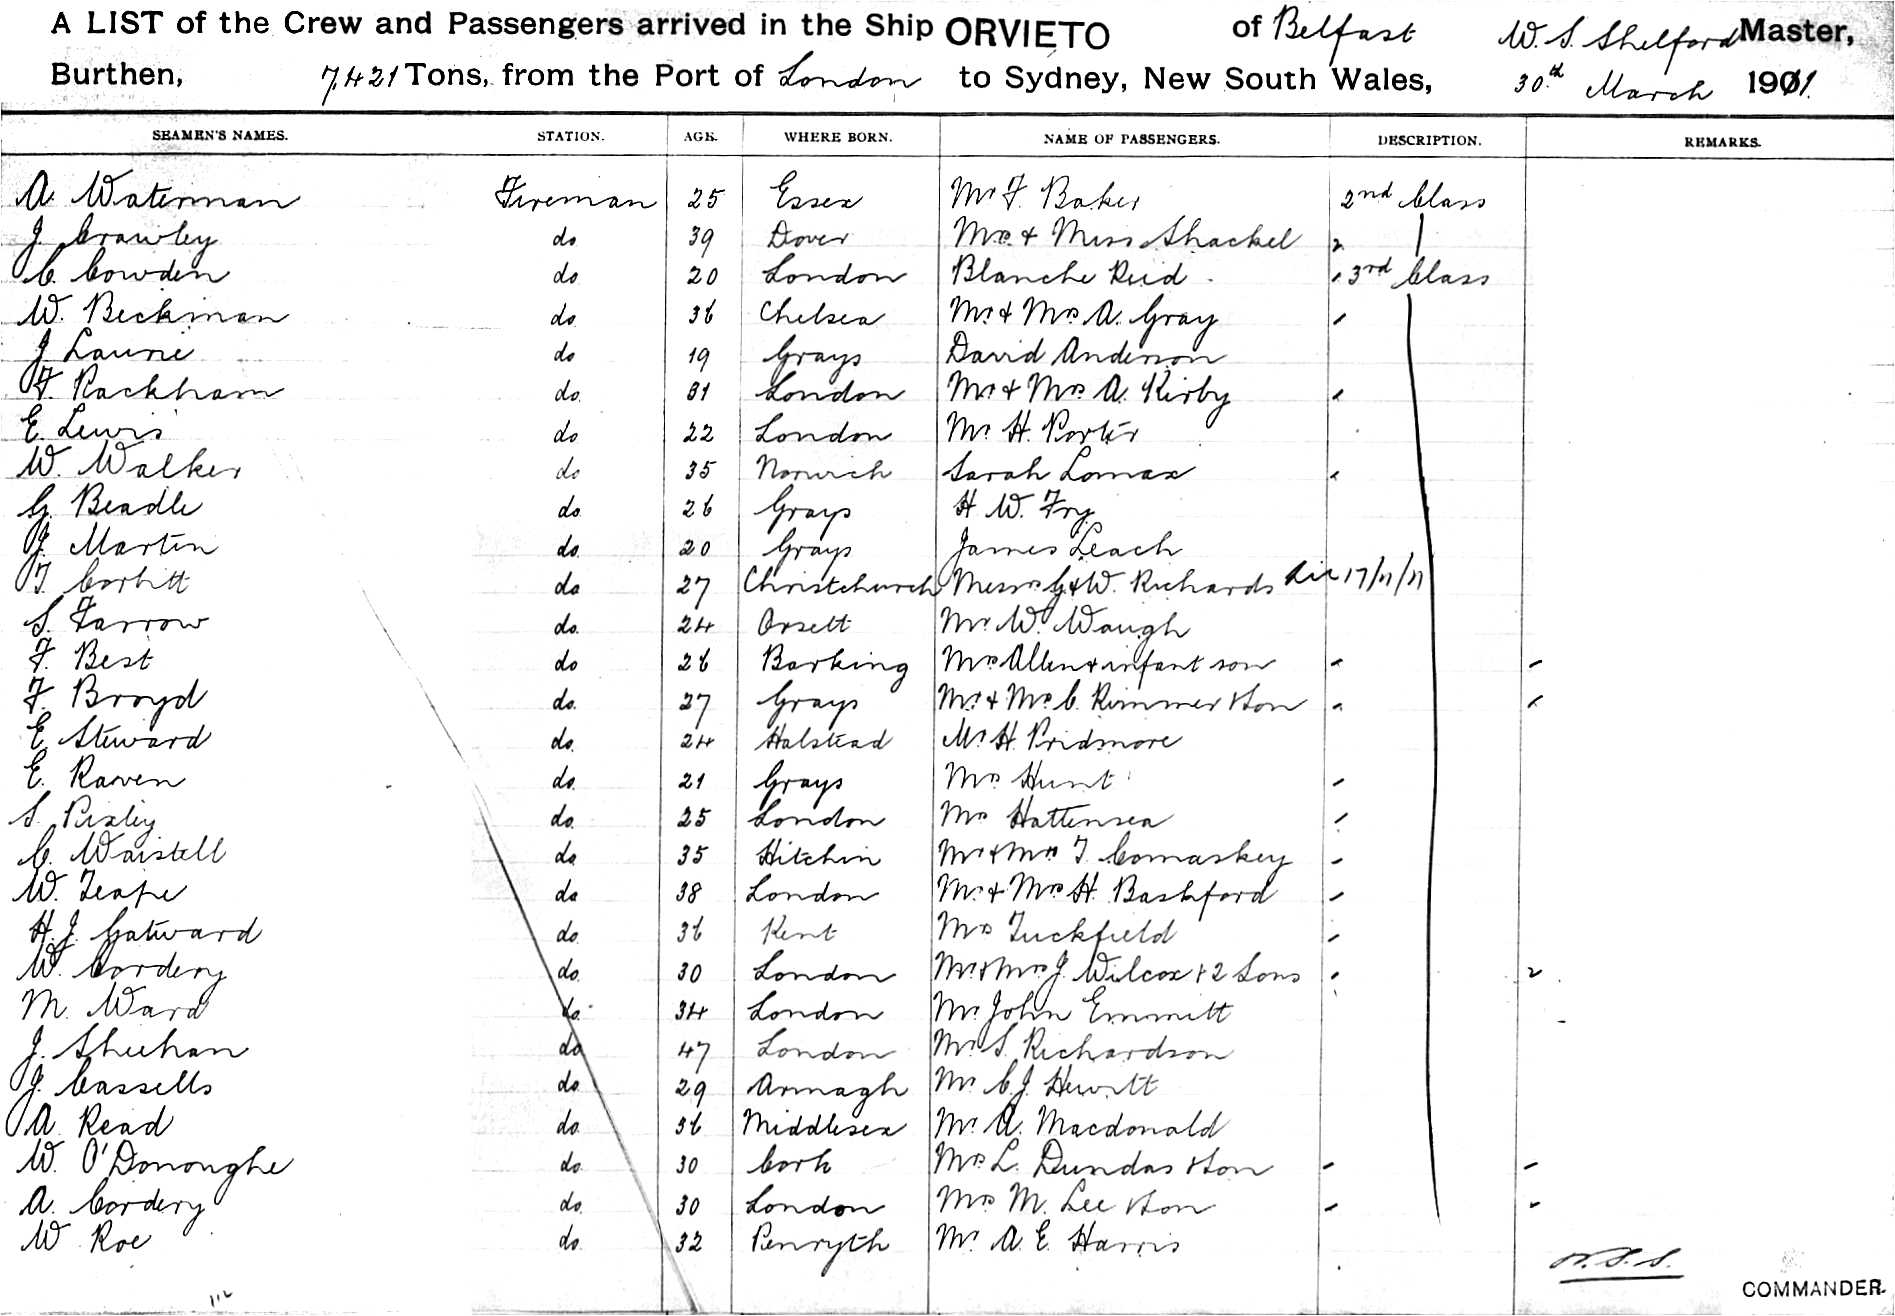 A LIST of the Crew and Passengers arrived in the Ship ORVIETO of Belfast W. S. Shelford Master,
Burthen, 7,421 Tons, from the Port of London to Sydney, New South Wales, 30th March 1911.
SEAMEN'S NAMES. STATION. AGE. WHERE BORN. NAME OF PASSENGERS. DESCRIPTION. REMARKS.
A. Waterman Fireman 25 Essex Mr F. Baker 2nd Class
J. Crawley do 39 Dover Mrs & Miss Shackel 2
C. Cowden do 20 London Blanche Reid 3rd Class
W. Beckman do 36 Chelsea Mr & Mrs A. Gray
J. Laurie do 19 Grays David Anderson
F. Rackham do 31 London Mr & Mrs A. Kirby
E. Lewis do 22 London Mr H. Porter
W. Walker do 35 Norwich Sarah Lomax
G. Beadle do 26 Grays H W. Fry
J. Martin do 20 Grays James Leach
T. Corbitt do 27 Christchurch Messrs G & W. Richards 17/11/11
S. Farrow do 24 Orsett Mr W. Waugh
F. Best do 26 Barking Mrs Allen & infant son
F. Broyd do 27 Grays Mr & Mrs C. Rimmer & Son
E. Steward do 24 Halstead Mr H. Pridmore
E. Raven do 21 Grays Mrs Hunt
S. Pixley do 25 London Mrs Hattensea
C. Waistell do 35 Hitchin Mr & Mrs T. Comaskey
W. Teape do 38 London Mr & Mrs H. Bashford
H. J. Gatward do 36 Kent Mrs Tuckfield
W. Cordery do 30 London Mr & Mrs J. Wilcox & 2 Sons 2
M. Ward do 34 London Mr John Emmitt
J. Sheehan do 47 London Mr S. Richardson
J. Cassells do 29 Armagh Mr C. J. Hewitt
A. Read do 36 Middlesex Mr A. Macdonald
W. O'Donoughe do 30 Cork Mrs L. Dundas & Son
A. Cordery do 30 London Mrs M. Lee & Son
W Roe do 32 Penryth Mr A. E. Harris
W.S.S.
COMMANDER.